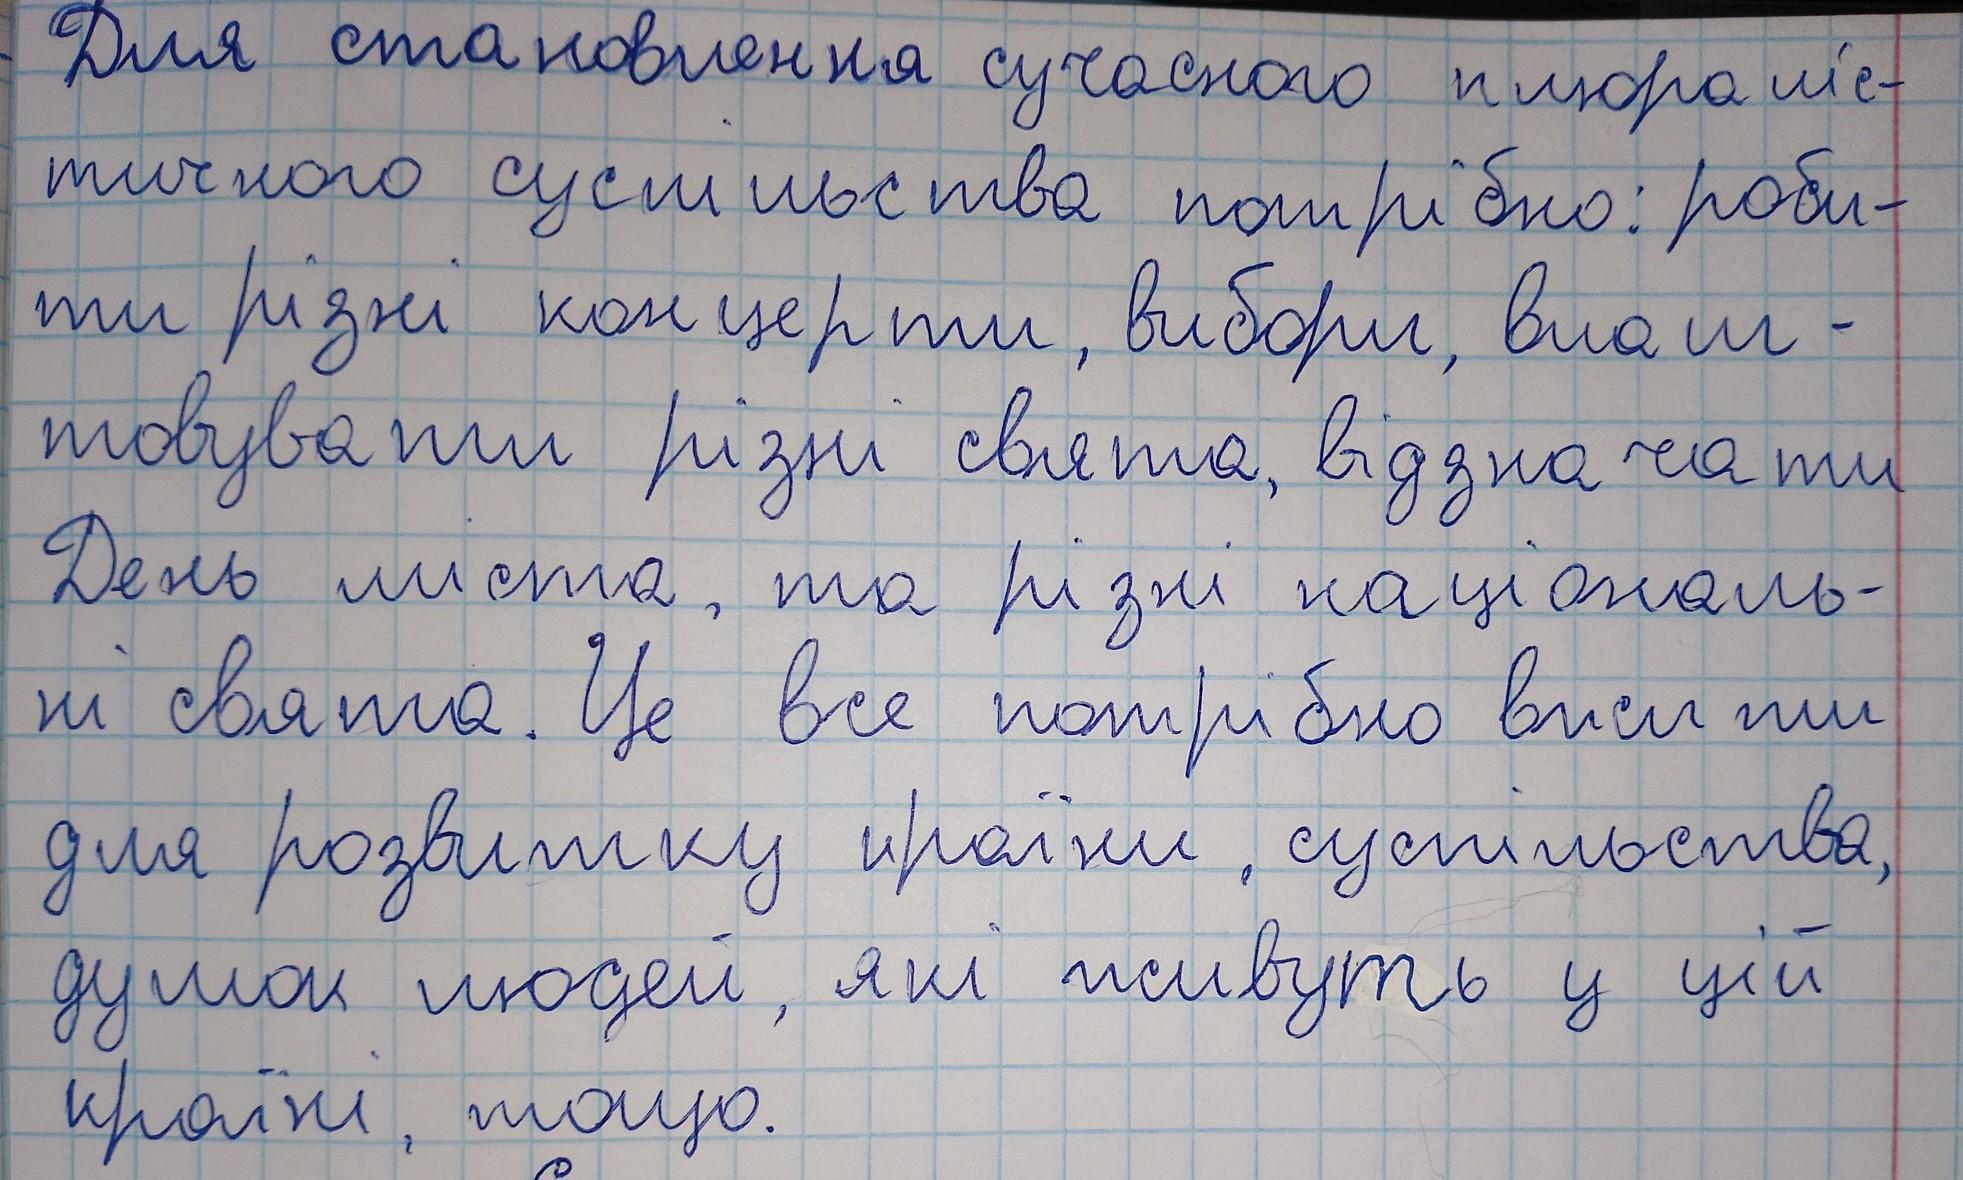 Для становлення сучасного плюраліс-
тичного суспільства потрібно: роби-
ти різні концерти, вибори, влаш-
товувати різні свята, відзначати
День міста, та різні національ-
ні свята. Це все потрібно
для розвитку країни, суспільства,
думок людей, які живуть у цій
країні, тощо.